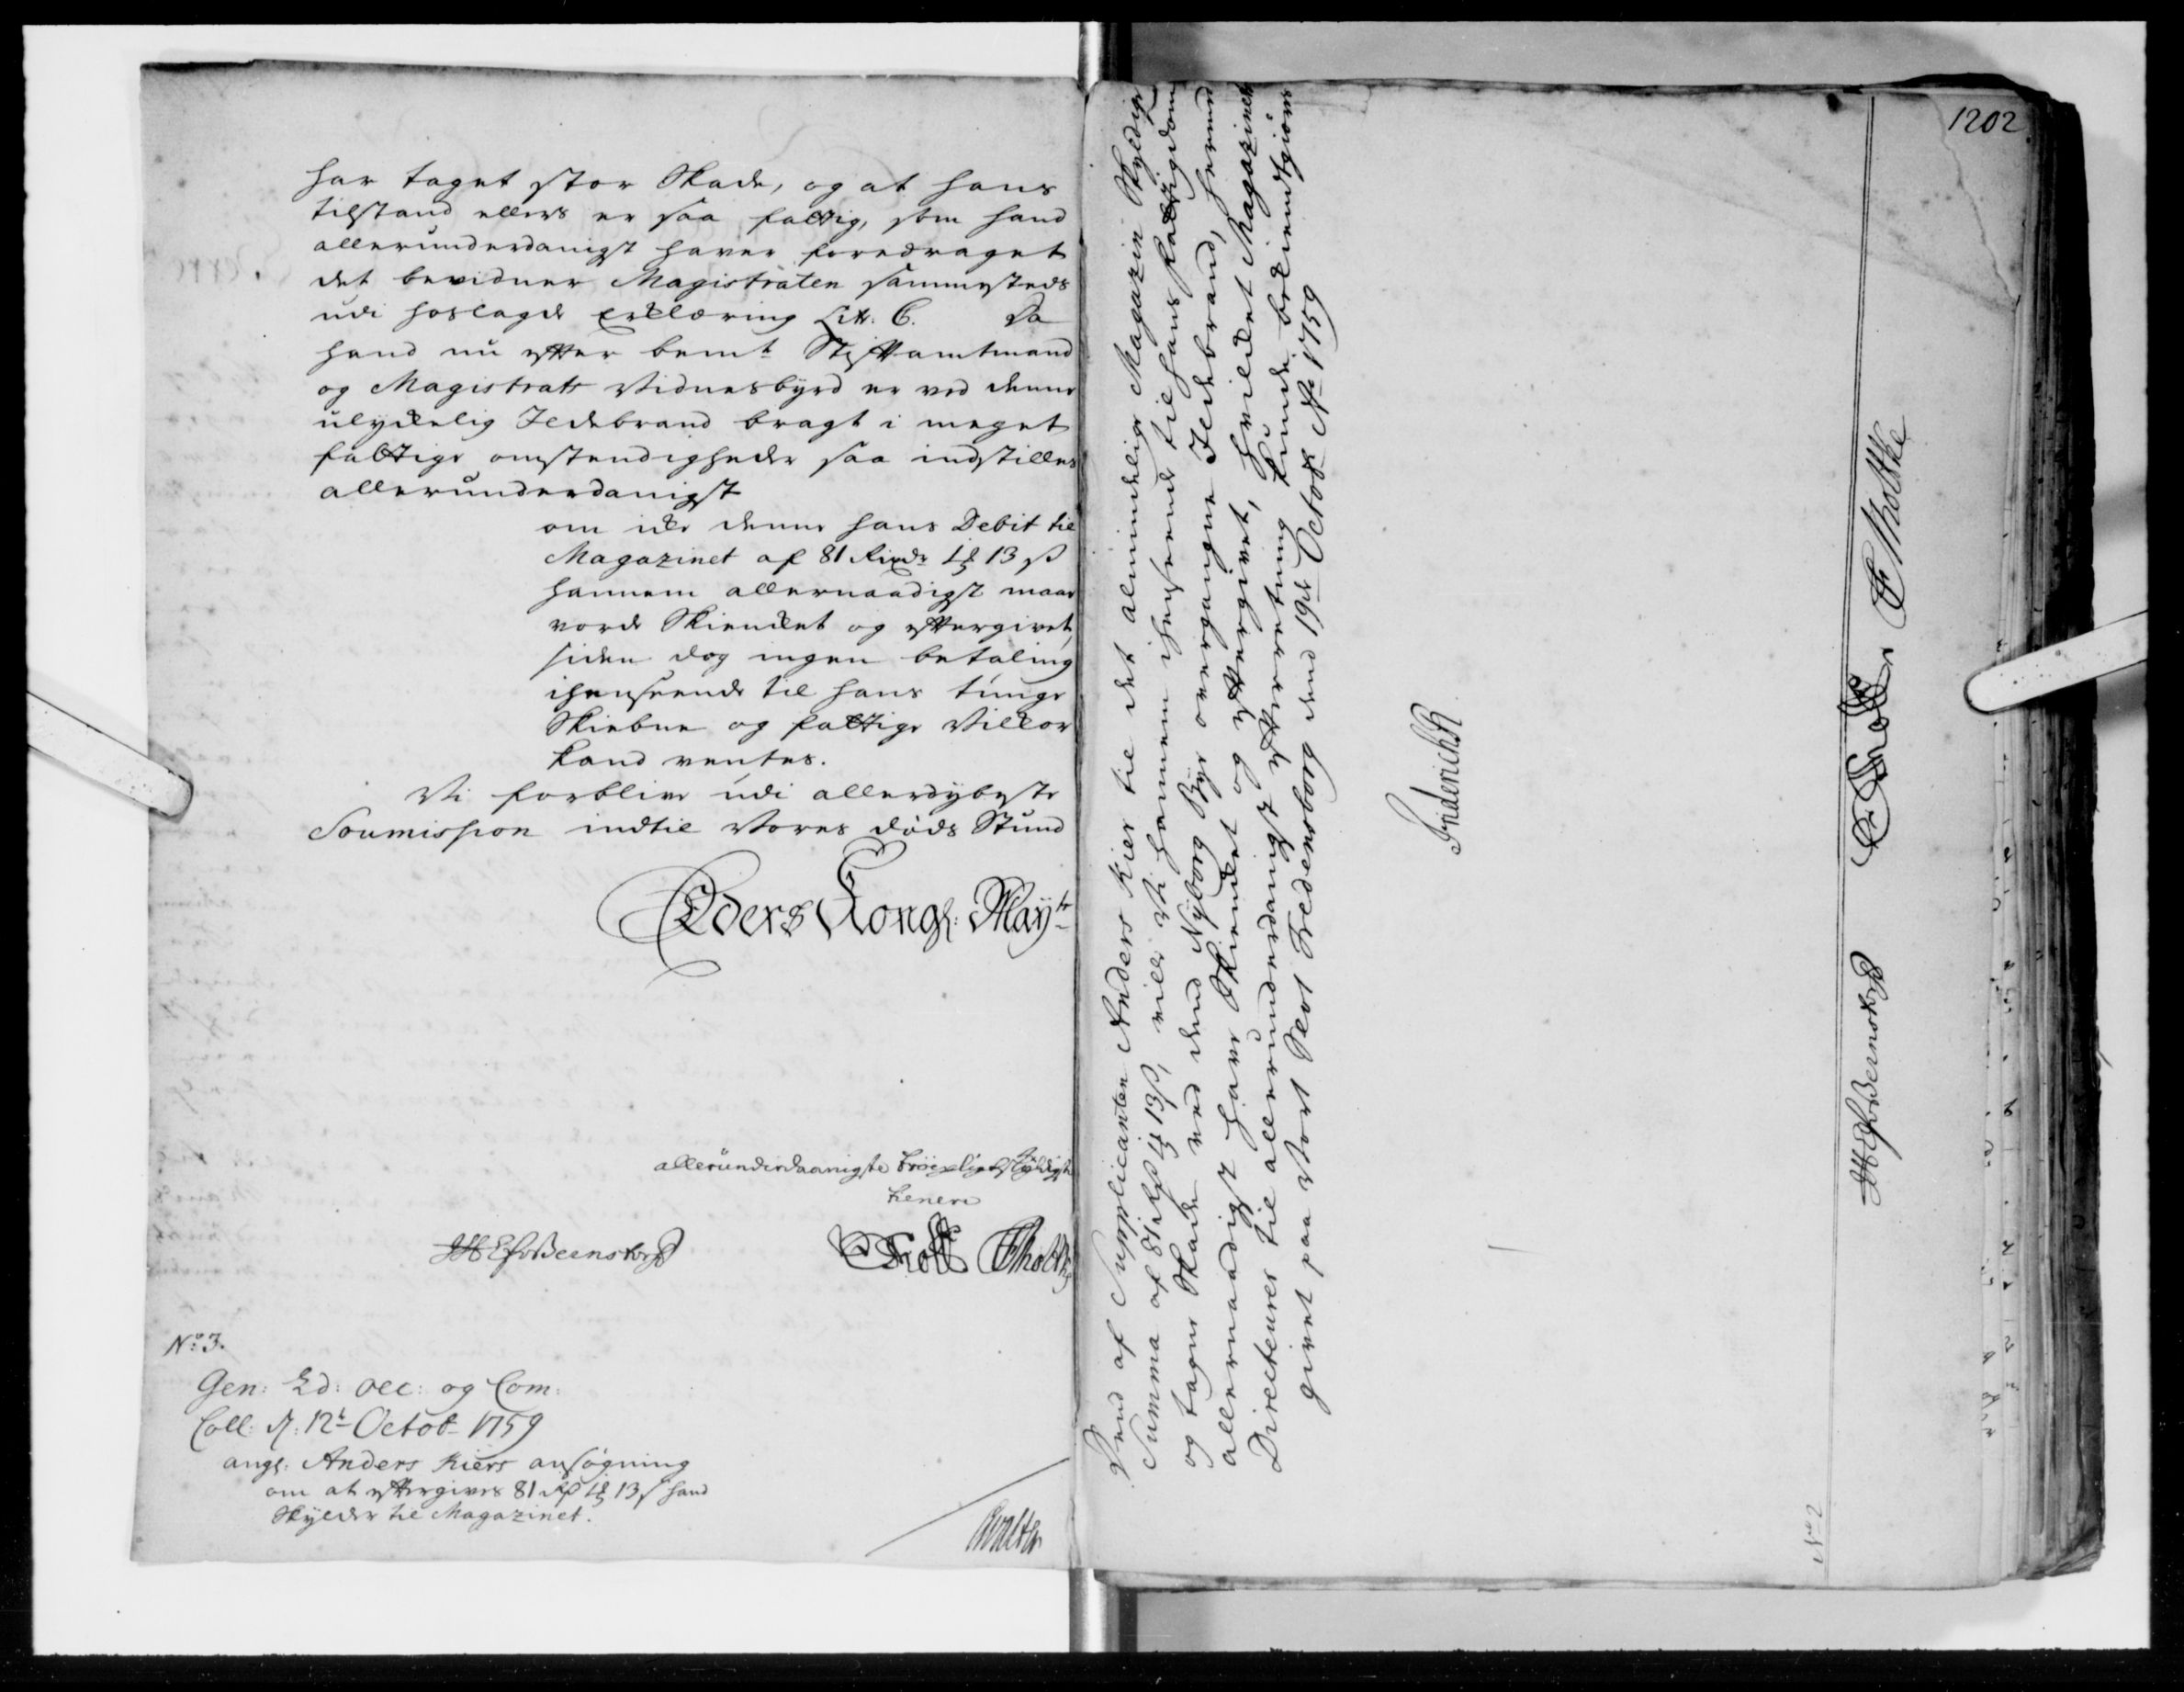 har taget stor Skade, og at hans
tilstand ellers er saa fattig, som hand
allerunderdanigst haver foredraget
det bevidner Magistraten sammesteds
udi hoslagde Erklæring Litr: C. Da
hand nu efter bemte Stiftamtmand
og Magistrats Vidnesbyrd er ved denne
ulykkelig Ildebrand bragt i meget
fattige omstendigheder saa indstilles
allerunderdanigst
om icke denne hans Debit til
Magazinet af 81 Rixdr 4 ꝑ 13 ß
hannem allernaadigst maae
vorde Skiencket og eftergivet,
siden dog ingen betaling
ihenseende til hans tunge
Skiebne og fattige Vilkor
kand ventes.
Vi forblive udi allerdybeste
Soumission indtil Vores døds Stund
Eders Kongl: Mayts
allerunderdaanigste troepligtskyldigste
tienere
HEfvBernstorff
Tholt Moltke
No: 3.
Gen: Ld: Oec: og Com:
Coll: d: 12t Octob 1759
angl: Anders Kiers ansøgning
om at eftergives 81 Rd 4 ꝑ 13 ß hand
Skylder til Magazinet.
1202
Dend af Supplicanten Anders Kier til det almindelige Magazin Skyldige
Summa af 81 Rd 4 ꝑ 13 ß, ville Vi hannem ihenseende til hans fattigdom
og tagne Skade ved dend Nyborg Bye overgangne Ildebrand, herved
allernaadigst have Skiencket og eftergivet, hvilcket Magazinets
Directeurer til allerunderdanigst efterretning kunde bekiendtgiøres
givet paa Vort Slot Fredensborg dend 19de Octobr Ao 1759
Friderich R
HEfvBernstorff Tholt Moltke
No 2